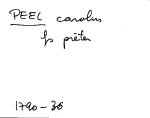 PEEL carolus
fs prêtre
1790-36